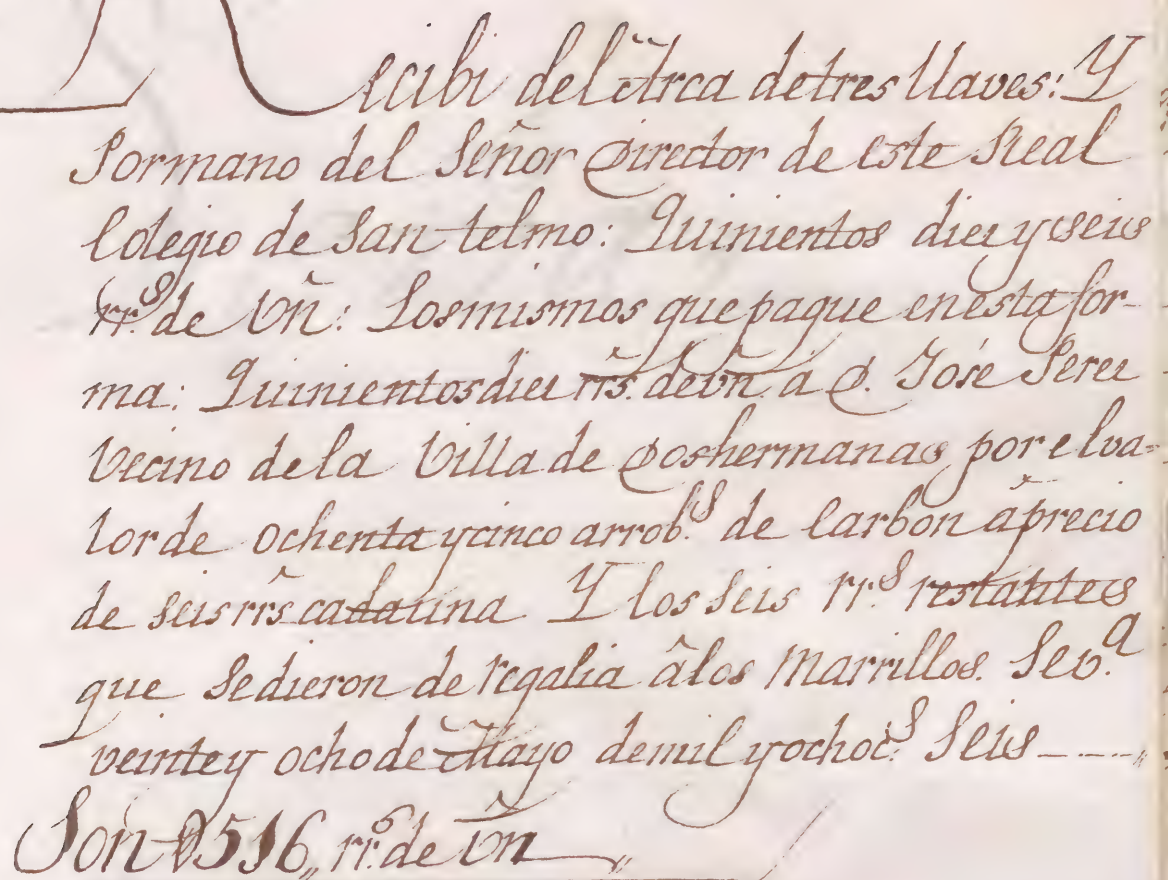 Recibi del Arca de tres llaves: Y
Por mano del Señor Director de este Real
Colegio de San telmo: Quinientos diez y seis
rr.s de Vñ: Los mismos que pague en esta for-
ma: Quinientos diez rrs. de vn. a D. José Perez
Vecino de la Villa de Doshermanas por el va-
lor de ochenta y cinco arrob.s de Carbon a precio
de seis rrs cada una Y los seis rr.s restantes
que se dieron de regalia a los Marrillos. Sev.a
veinte y ocho de Mayo de mil y ochoc.s Seis
Son 0516,, rr.s de Vñ